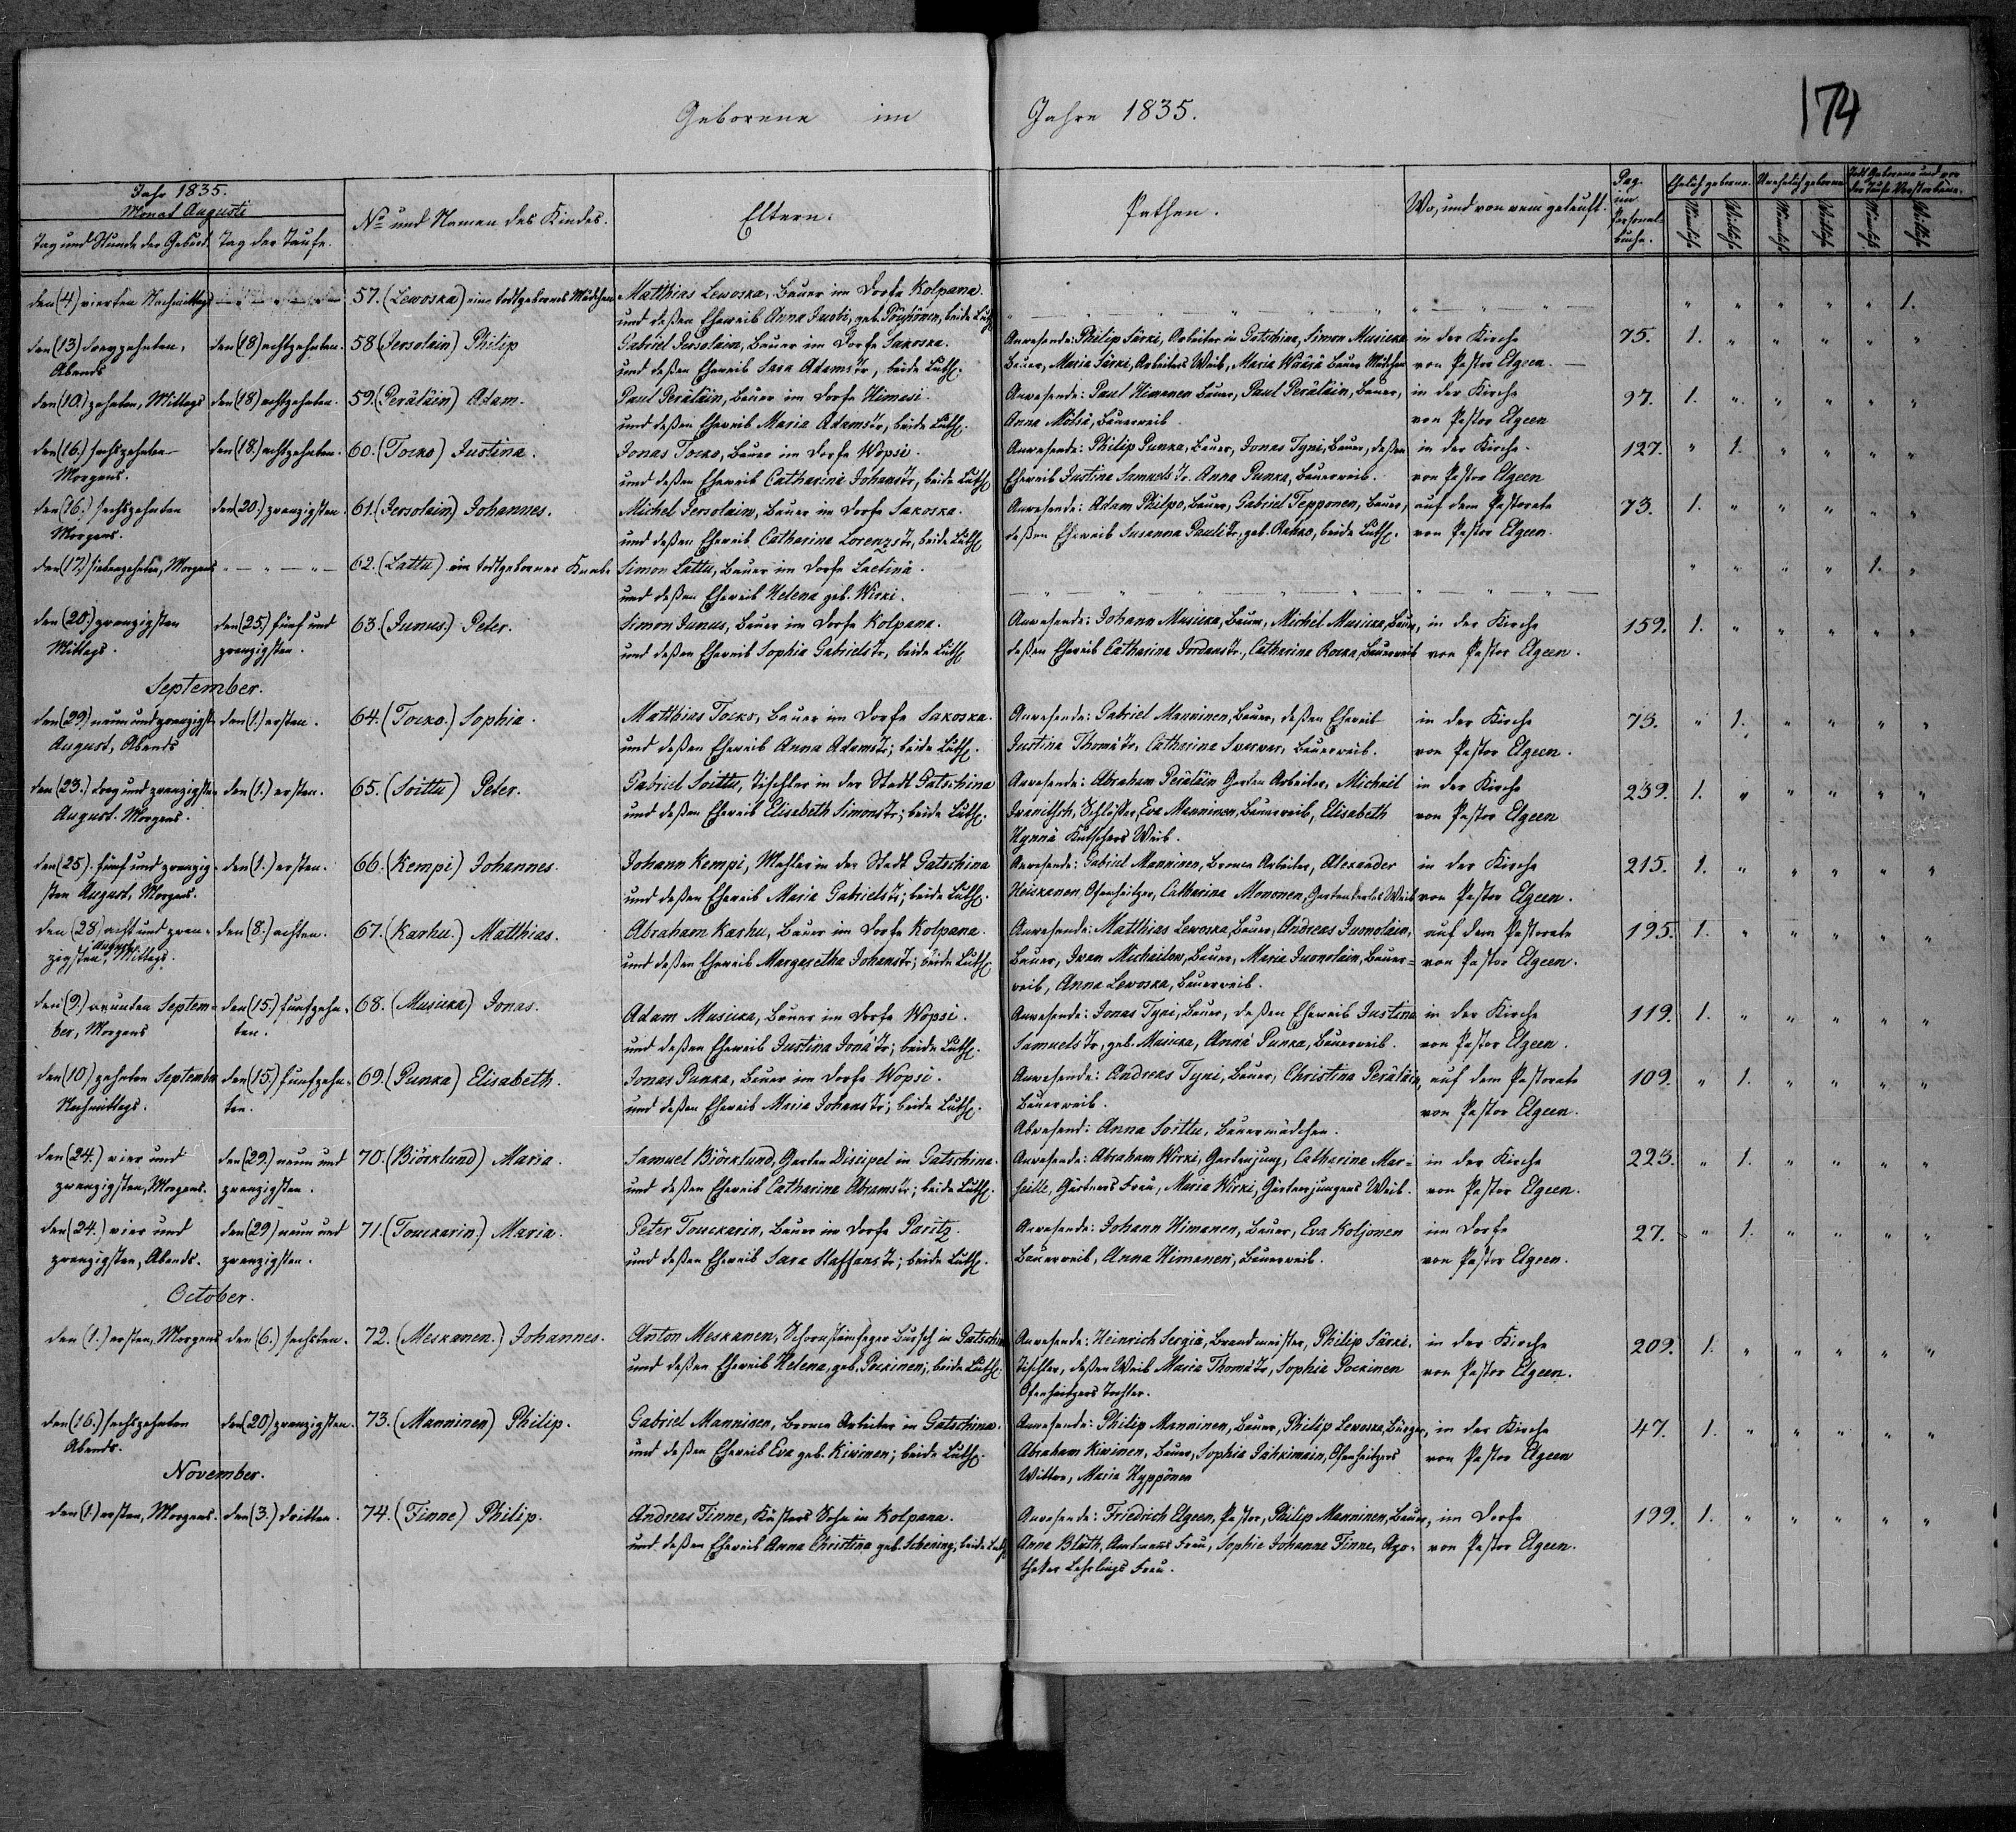 Geborene im Jahre 1835.
174
Jahr 1835.
Monat Augusti
Tag und Stunde der Geburt. Tag der Taufe.
No und Namen des Kindes.
Eltern.
Pathen.
Wo, und von wem getauft.
Pag. im Personal-buche.
Ehelich geborne. Unehelich geborne. Todt Geborene und vor der Taufe Verstorbene.
Männliche Weibliche Männliche Weibliche Männliche Weibliche
den (4) vierten Nachmittags 57. (Lewoska) eine todtgebornes Mädchen Matthias Lewoska, Bauer im Dorfe Kolpana. 1.
und deßen Eheweib Anna Juobi, geb. beide Luth.
den (13) dreyzehnten, den (18) achtzehnten. 58 (Jersolain) Philip Gabriel Jersolain, Bauer im Dorfe Sakoska. Anwesende: Philip Särki, Arbeiter in Gatschina, Simon Musicka in der Kirche 75. 1.
Abends und deßen Eheweib Sara Adamstr, beide Luth. Bauer, Maria Särki, Arbeiters Weib, Maria Bauer Mädchen von Pastor Elgeen.
den (10) zehnten, Mittags den (18) achtzehnten. 59. (Peräläin) Adam. Paul Peräläin, Bauer im Dorfe Himosi. Anwesende: Paul Himenen Bauer, Paul Peräläin, Bauer, in der Kirche 97. 1.
und deßen Eheweib Maria Adamstr, beide Luth. Anna Mölsä, Bauerweib von Pastor Elgeen
den (16.) sechszehnten den (18.) achtzehnten. 60. (Tocko) Justina. Jonas Tocko, Bauer im Dorfe Wopsi. Anwesende: Philip Punka, Bauer, Jonas Tyni, Bauer, deßen in der Kirche 127. 1.
Morgens. und deßen Eheweib Catharina Johanstr, beide Luth Eheweib Justina Samuelstr. Anna Punka, Bauerweib. von Pastor Elgeen
den (16.) sechszehnten den (20.) zwanzigsten. 61. (Jersolain) Johannes. Michel Jersolain, Bauer im Dorfe Sakoska. Anwesende: Adam Philpo, Bauer, Gabriel Tepponen, Bauer, auf dem Pastorate 73. 1.
Morgens. und deßen Eheweib Catharina Lorenzstr, beide Luth deßen Eheweib Susanna Paulitr, geb. Rakko, beide Luth. von Pastor Elgeen.
den (17) siebenzehnten, Morgens 62. (Lattu) ein todtgeborner Knabe Simon Lattu, Bauer im Dorfe Laetinä. 1.
und deßen Eheweib Helena geb. Wirki.
den (20.) zwanzigsten den (25.) fünf und 63. (Junus.) Peter. Simon Junus, Bauer im Dorfe Kolpana. Anwesende: Johann Musicka, Bauer, Michel Musicka, Bauer, in der Kirche 159. 1.
Mittags. zwanzigsten. und deßen Eheweib Sophia Gabrielstr, beide Luth deßen Eheweib Catharina Jordanstr., Catharina Rocka, Bauerweib von Pastor Elgeen.
September.
den (29) neun und zwanzigst. den (1.) ersten. 64. (Tocko.) Sophia. Matthias Tocko, Bauer im Dorfe Sakoska. Anwesende: Gabriel Manninen, Bauer, deßen Eheweib in der Kirche 73. 1.
August, Abends und deßen Eheweib Anna Adamstr; beide Luth. Justina Thomätr, Catharina Bauerweib. von Pastor Elgeen.
den (23.) drey und zwanzigsten den (1.) ersten. 65. (Soittu) Peter. Gabriel Soittu, Tischler in der Stadt Gatschina Anwesende: Abraham Peräläin Garten Arbeiter, Michail in der Kirche 239. 1.
August. Morgens. und deßen Eheweib Elisabeth Simonstr; beide Luth. Iwanitsch, Schlößer, Eva Manninen, Bauerweib, Elisabeth von Pastor Elgeen
Hynnä Kutschers Weib.
den (25). fünf und zwanzig- den (1.) ersten. 66. (Kempi) Johannes. Johann Kempi, Mahler in der Stadt Gatschina Anwesende: Gabriel Manninen, Bronca Arbeiter, Alexander in der Kirche 215. 1.
sten August, Morgens. und deßen Eheweib Maria Gabrielstr; beide Luth. Heiskanen, Ofenheitzer, Catharina Mononen, Gartenkerls Weib von Pastor Elgeen.
den (28) acht und zwan- den (8.) achten. 67. (Karhu.) Matthias. Abraham Karhu, Bauer im Dorfe Kolpana. Anwesende: Matthias Lewoska, Bauer, Andreas Jumolain, auf dem Pastorate 195. 1.
zigsten August, Mittags. und deßen Eheweib Margaretha Johanstr; beide Luth Bauer, Iwan Michailow, Bauer, Maria Juonolain, Bauer- von Pastor Elgeen.
weib, Anna Lewoska, Bauerweib.
den (9.) neunten Septem- den (15.) funfzehn- 68. (Musicka) Jonas. Adam Musicka, Bauer im Dorfe Wopsi. Anwesende: Jonas Tyni, Bauer, deßen Eheweib Justina in der Kirche 119. 1.
ber, Morgens ten. und deßen Eheweib Justina Jonätr; beide Luth. Samuelstr, geb. Musicka, Anna Punka, Bauerweib. von Pastor Elgeen.
den (10) zehnten September den (15.) funfzehn- 69. (Punka) Elisabeth. Jonas Punka, Bauer im Dorfe Wopsi. Anwesende: Andreas Tyni, Bauer, Christina Peräläin, auf dem Pastorate 109. 1.
Nachmittags. ten. und deßen Eheweib Maria Johanstr; beide Luth. Bauerweib. von Pastor Elgeen.
Abwesend: Anna Soittu, Bauermädchen.
den (24.) vier und den (29.) neun und 70. (Biörklund) Maria. Samuel Biörklund, Garten Discipel in Gatschina. Anwesende: Abraham Wirki, Gartenjung, Catharina Mar- in der Kirche 223. 1.
zwanzigsten, Morgens. zwanzigsten. und deßen Eheweib Catharina Abramstr; beide Luth. seille, Gärtners Frau, Maria Wirki, Gartenjungens Weib. von Pastor Elgeen.
den (24.) vier und den (29) neun und 71. (Touckarin.) Maria. Peter Touckarin, Bauer im Dorfe Paritz. Anwesende: Johann Himanen, Bauer, Eva Koljonen im Dorfe 27. 1.
zwanzigsten, Abends. zwanzigsten. und deßen Eheweib Sara Staffanstr; beide Luth. Bauerweib, Anna Himanen, Bauerweib. von Pastor Elgeen.
October.
den (1.) ersten, Morgens den (6.) sechsten. 72. (Meskanen.) Johannes. Anton Meskanen, Schornsteinfeger Bursch in Gatschina Anwesende: Heinrich Sergiä, Brandmeister, Philip Särki. in der Kirche 209. 1.
und deßen Eheweib Helena, geb. Pockinen; beide Luth. Tischler, deßen Weib Maria Thomätr, Sophia Pockinen von Pastor Elgeen.
Ofenheitzers Tochter.
den (16.) sechszehnten den (20) zwanzigsten. 73. (Manninen) Philip. Gabriel Manninen, Bronca Arbeiter in Gatschina. Anwesende: Philip Manninen, Bauer, Philip Lewoska, Bürger, in der Kirche 47. 1.
Abends. und deßen Eheweib Eva geb. Kiwinen; beide Luth. Abraham Kiwinen, Bauer, Sophia Ofenheitzers von Pastor Elgeen
Wittwe, Maria Hyppönen
November.
den (1.) ersten, Morgens. den (3.) dritten. 74. (Finne) Philip. Andreas Finne, Küsters Sohn in Kolpana. Anwesende: Friedrich Elgeen, Pastor, Philip Manninen, Bauer, im Dorfe 199. 1.
und deßen Eheweib Anna Christina geb. Schering, beide Luth Anna Blüth, Amtmans Frau, Sophie Johanne Finne, Apo- von Pastor Elgeen.
theker Lehrlings Frau.